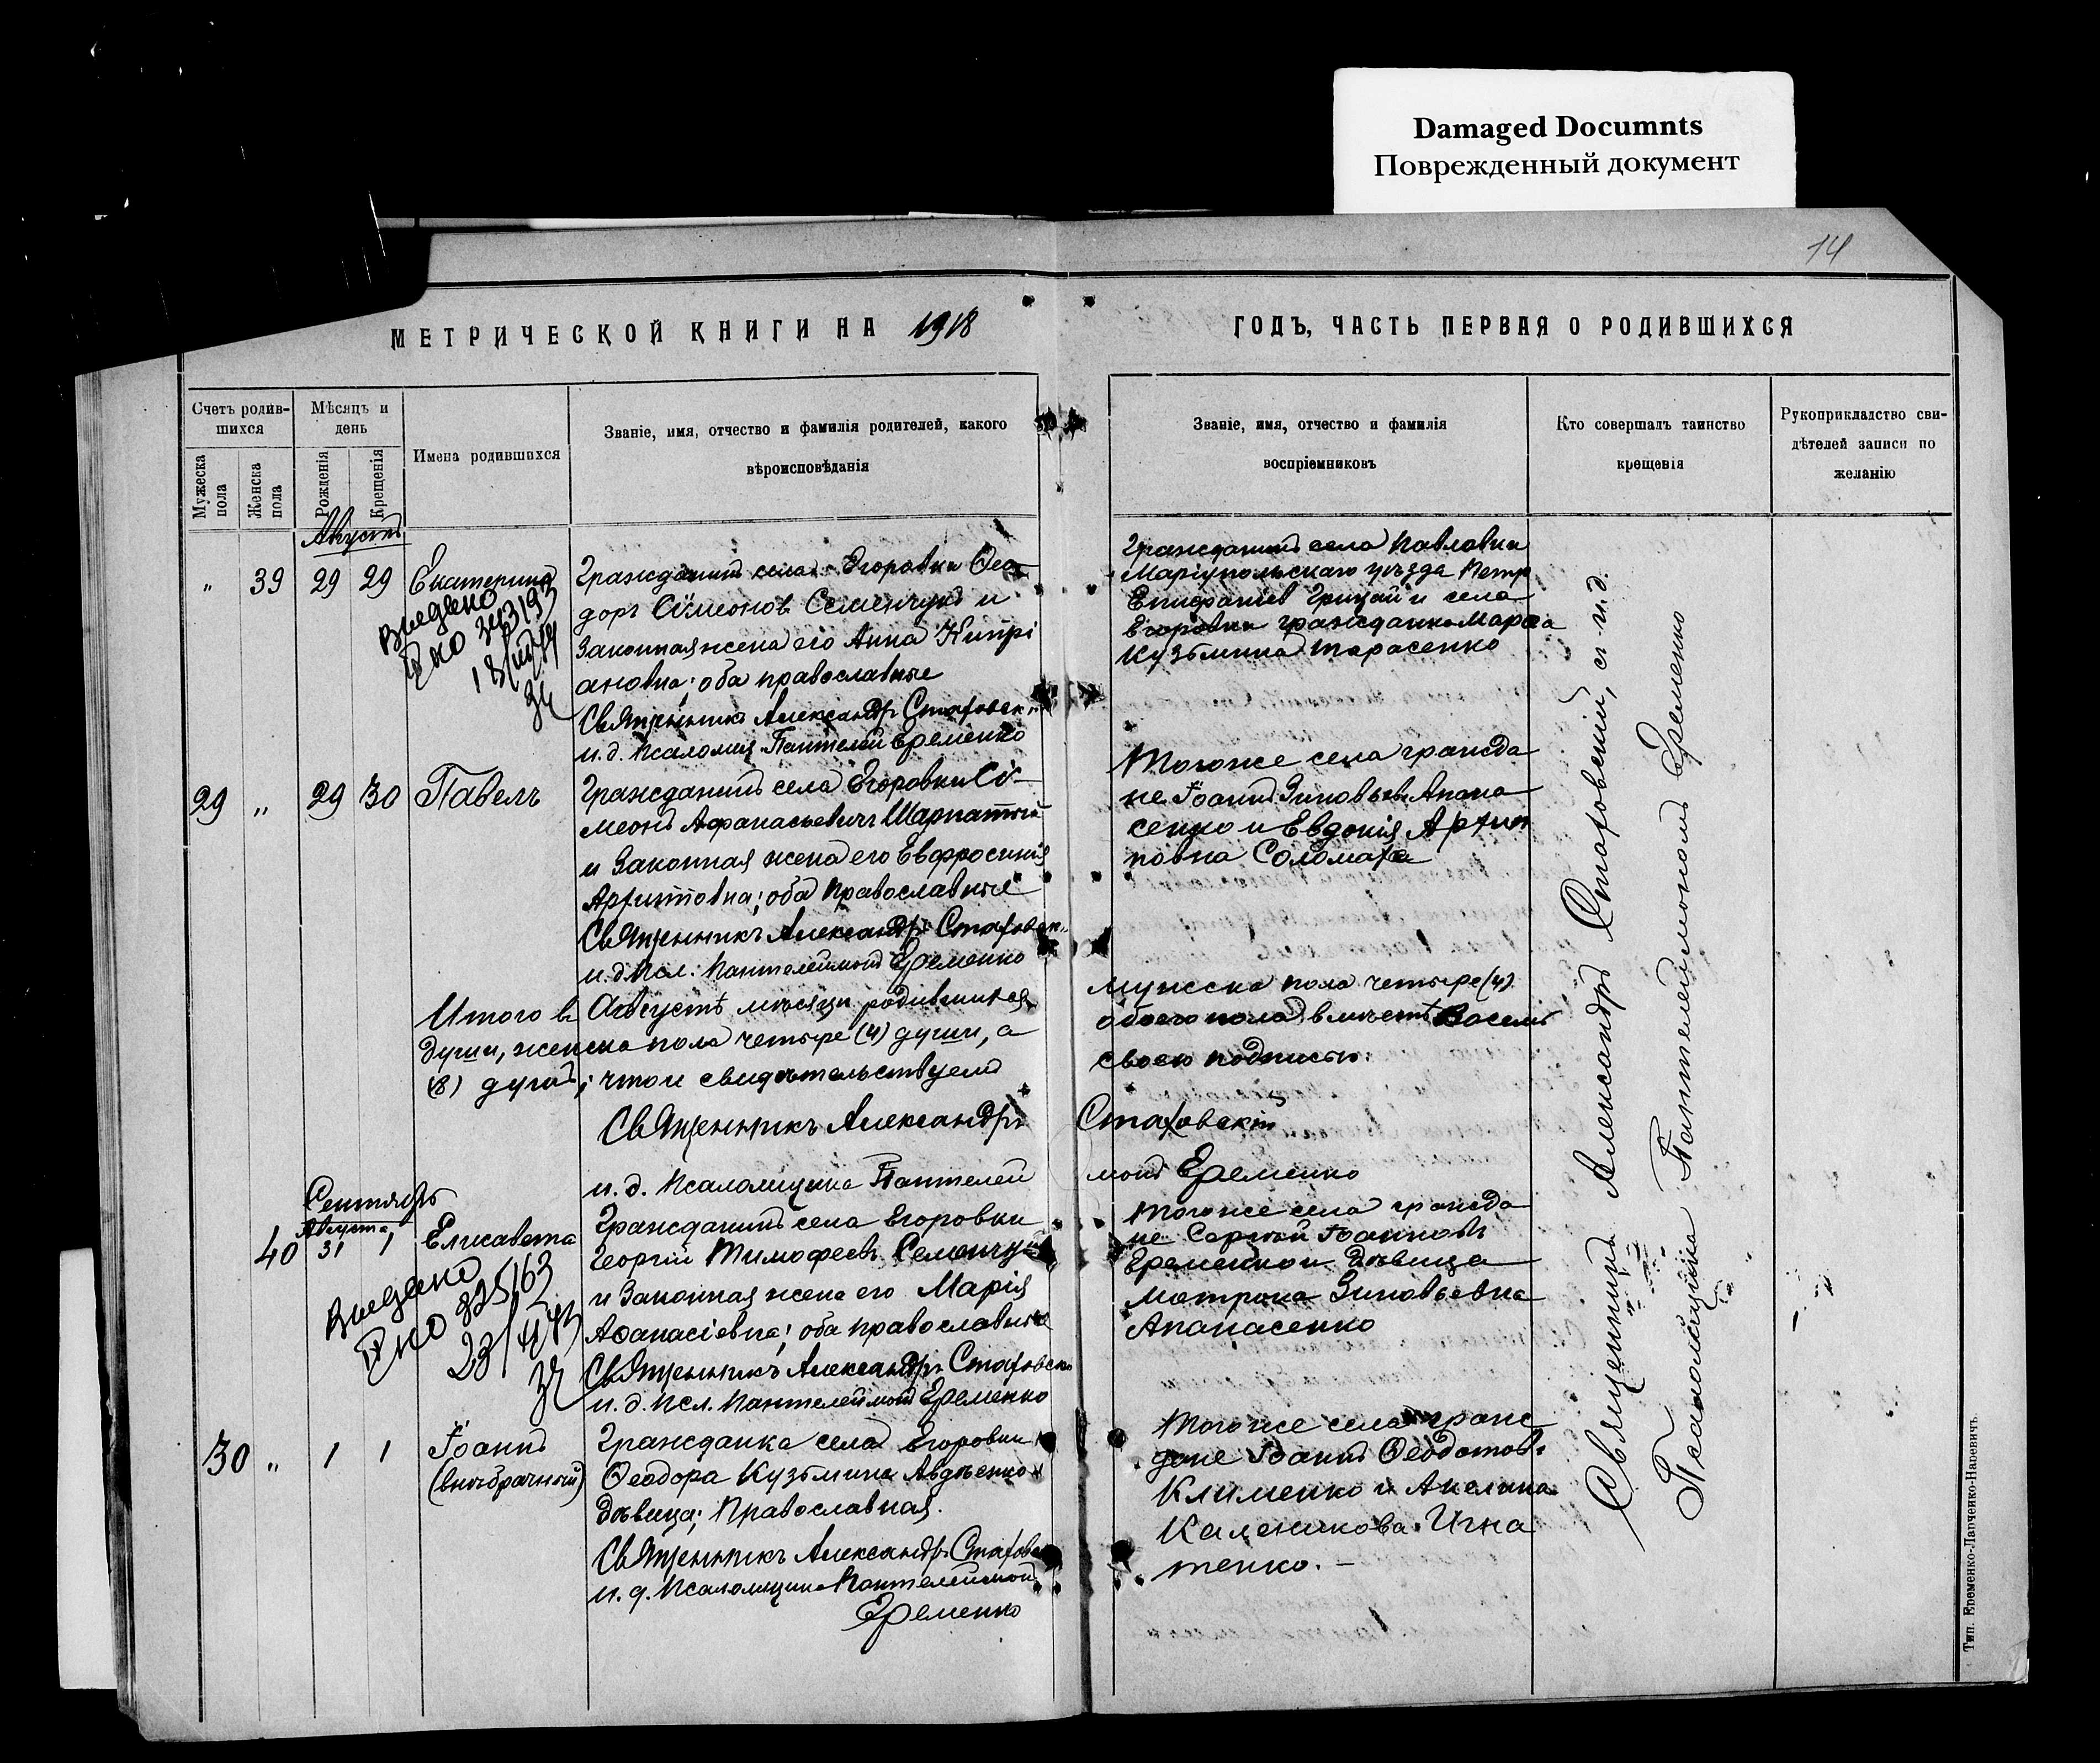 Damaged Documnts
Поврежденный документ
14
МЕТРИЧЕСКОЙ КНИГИ НА 1918
ГОДЪ, ЧАСТЬ ПЕРВАЯ О РОДИВШИХСЯ
Счетъ родив-
шихся
Мужеска пола
Женска пола
Мѣсяцъ и
день
Рожденія
Крещенія
Имена родившихся
Званіе, имя, отчество и фамилія родителей, какого
вѣроисповѣданія
Званіе, имя, отчество и фамилія
воспріемниковъ
Кто совершалъ таинство
крещенія
Рукоприкладство сви-
дѣтелей записи по
желанію
Августъ
" 39 29 29 Екатерина
Выдано
ЯКО 343193
34
Гражданинъ села Егоровки Ѳео-
доръ Сѵмеоновъ Семенчукъ и
законная жена его Анна Кипрі
ановна; оба православные
Священникъ Александръ Стаховск
и.д. псаломщ. Пантелей Еременко
Гражданинъ села Павловки
Маріупольскаго уѣзда Петр
Епифаніев Грицай и села
Егоровки гражданка Марѳа
Кузьмина Тарасенко
29 " 29 30 Павелъ
Гражданинъ села Егоровки Сѵ-
меонъ Афанасьевичъ Шарпатый
и законная жена его Евфросинія
Архиповна; оба православные
Священникъ Александръ Стаховск.
и.д. псл. Пантелеймонъ Еременко
Того же села гражда
не Іоаннъ Зиновьевъ Апана
сенко и Евдокія Архип
повна Соломаха
Итого въ Августѣ мѣсяцѣ родившихся
мужска пола четыре (4)
души, женска пола четыре (4) души, а
обоего пола вмѣстѣ восемь
(8) душъ; что и свидѣтельствуемъ
своею подписью:
Священникъ Александръ
Стаховскій
и. д. Псаломщика Пантелей
монъ Еременко
Сентябрь
Августа
40 31 1 Елисавета
Выдано
ЯКО 325163
34
Гражданинъ села Егоровки
Георгій Тимофеевъ Семенчукъ
и законная жена его Марія
Аѳанасіевна; оба православные
Священникъ Александръ Стаховск
и. д. псл. Пантелеймонъ Еременко
Того же села гражда
не Сергѣй Іоанновъ
Еременко и дѣвица
Матрона Зиновьевна
Апанасенко
30 " 1 1 Іоаннъ
(внѣбрачный)
Гражданка села Егоровки
Ѳеодора Кузьмина Авдѣенко
дѣвица; православная.
Священникъ Александръ Стаховс
и. д. псаломщика Пантелеймонъ
Еременко
Того же села граж
дане Іоаннъ Ѳеодотов
Клименко и Акелина
Каленикова Игна
тенко. –
Священникъ Александръ Стаховскій, съ и.д.
Псаломщика Пантелеймономъ Еременко
Тип. Еременко-Ларченко-Наревичъ.